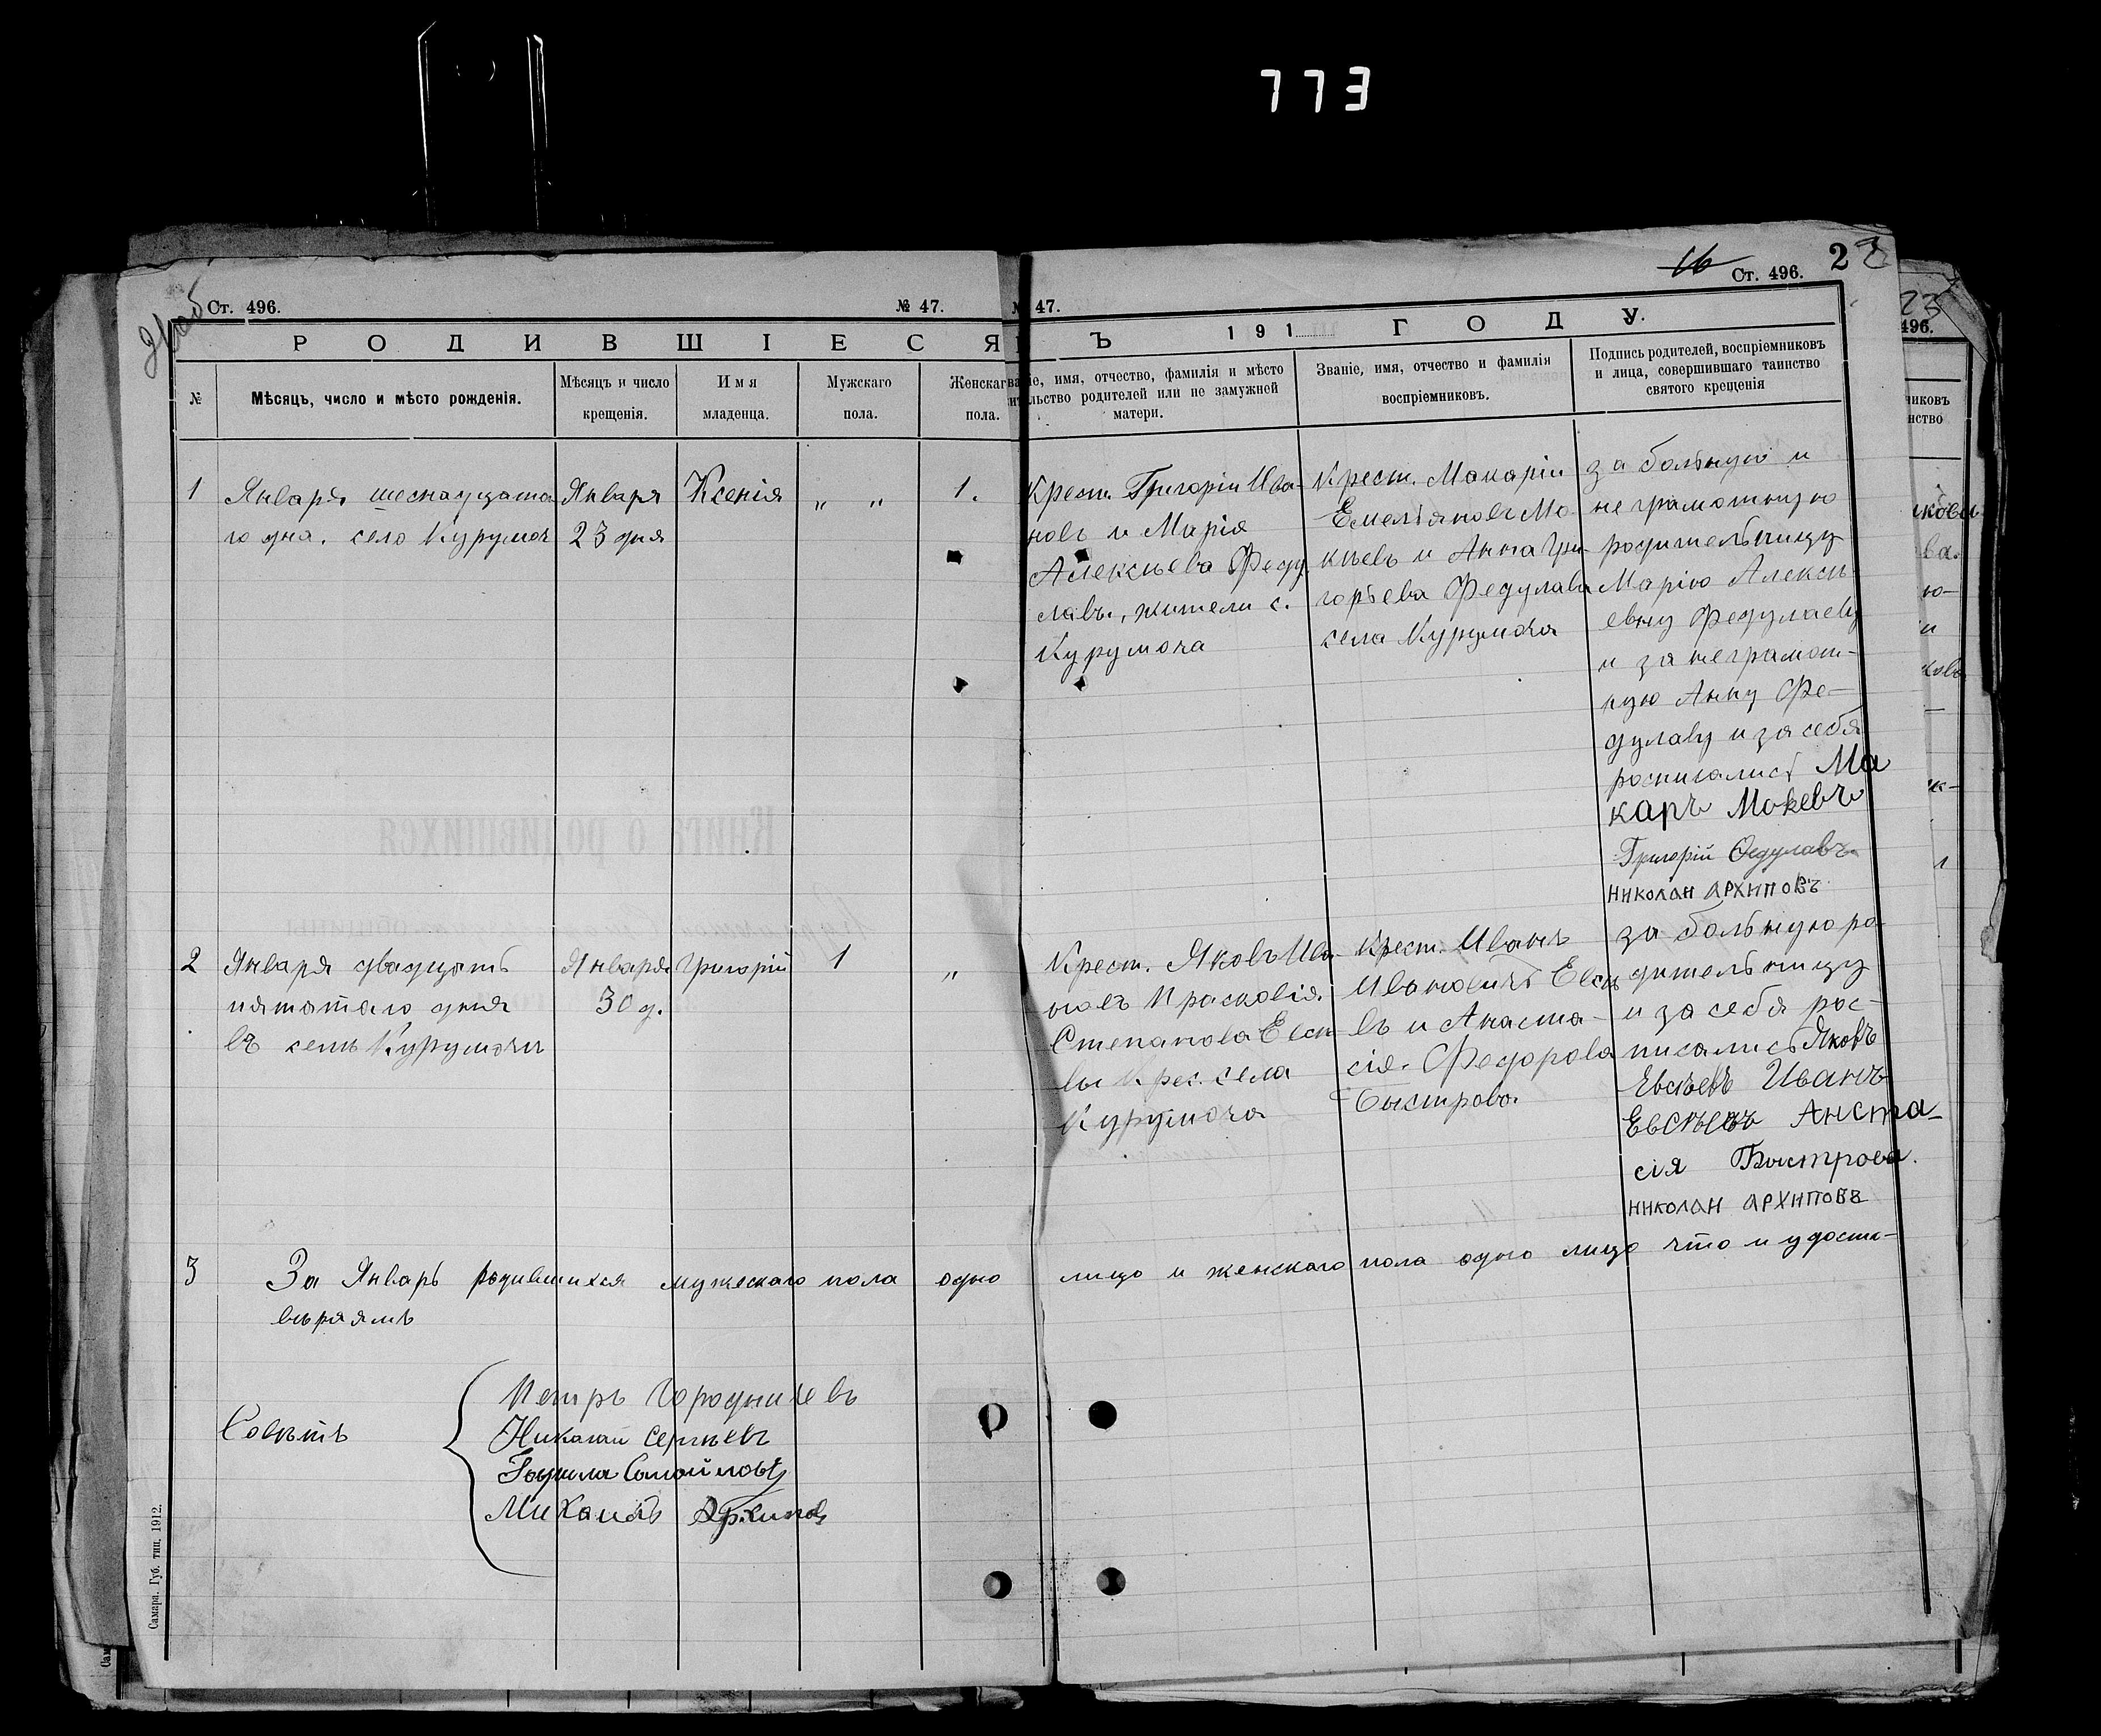 773
16
Ст. 496.
2
Ст. 496.
№ 47.
47.
РОДИВШІЕСЯ
Ъ 191 ГОДУ.
№
Мѣсяцъ, число и мѣсто рожденія.
Мѣсяцъ и число
крещенія.
Имя
младенца.
Мужскаго
пола.
Женскаг
пола.
іе, имя, отчество, фамилія и мѣсто
льство родителей или не замужней
матери.
Званіе, имя, отчество и фамилія
воспріемниковъ.
Подпись родителей, воспріемниковъ
и лица, совершившаго таинство
святого крещенія
1
Января шеснадцата
го дня. село Курумоч
Января
23 дня
Ксенія
„ „
1.
Крест. Григорій Ива-
новъ и Марія
Алексѣева Феду
лавы, жители с.
Курумоча
Крест. Макарій
Емельяновъ Мо
кѣевъ и Анна Гри-
горьева Федулава
села Курумоча
за больную и
не грамотную
родительницу
Марію Алексѣ
евну Федулаву
и за неграмот-
ную Анну Фе-
дулаву и за себя
росписались Ма
каръ Мокевъ
Григорій Федулавъ
николай архиповъ
2
Января двадцать
пятотаго дня
въ селѣ Курумочи
Января
30 д.
Григорій
1
„
Крест. Яковъ Ива-
новъ Прасковія
Степанова Евсѣ-
вы Крес. села
Курумоча
Крест. Иванъ
Ивановичъ Евсѣ
въ и Анаста-
сія. Федорова
Быстрова.
за больную ро
дительницу
и за себя рос-
писались Яковъ
Евсѣевъ Иванъ
Евсѣевъ Анста-
сія Быстрова.
николай архиповъ
3
За Январь родившихся мужескаго пола одно лицо и женскаго пола одно лицо что и удосто-
вѣряямъ
Совѣтъ
Петръ Городничевъ
Николай Сергѣевъ
Самойловъ
Михаилъ Архипов
Самара. Губ. тип. 1912.
Книга о родившихся